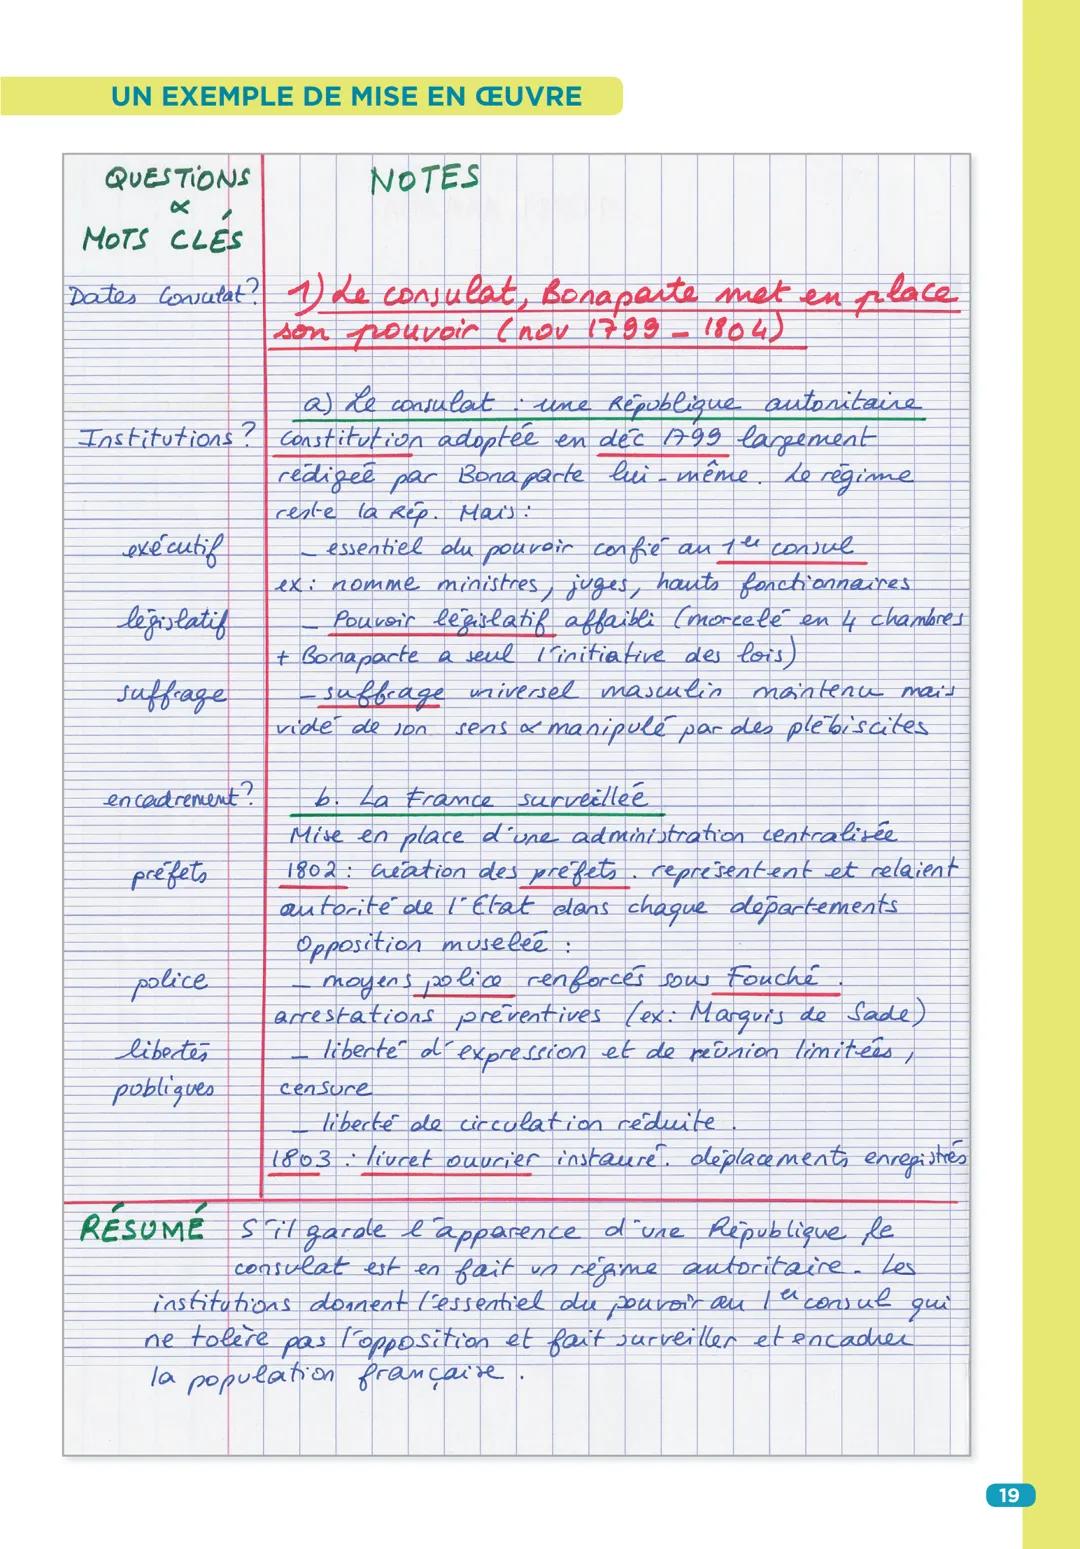 UN EXEMPLE DE MISE EN ŒUVRE
QUESTIONS
&
MOTS CLÉS
NOTES
Dates Consulat?
1) Le consulat, Bonaparte met en place
son pouvoir (nov 1799 - 1804)
a) Le consulat : une République autoritaire
Institutions?
Constitution adoptée en déc 1799 largement
rédigée par Bonaparte lui-même. Le régime
reste la Rép. Mais :
exécutif
- essentiel du pouvoir confié au 1er consul
ex : nomme ministres, juges, hauts fonctionnaires
législatif
- Pouvoir législatif affaibli (morcelé en 4 chambres
+ Bonaparte a seul l'initiative des lois)
suffrage
- suffrage universel masculin maintenu mais
vidé de son sens & manipulé par des plébiscites
encadrement?
b. La France surveillée
Mise en place d'une administration centralisée
préfets
1802 : création des préfets. représentent et relaient
autorité de l'Etat dans chaque départements
Opposition muselée :
police
- moyens police renforcés sous Fouché.
arrestations préventives (ex : Marquis de Sade)
libertés
- liberté d'expression et de réunion limitées,
publiques
censure
- liberté de circulation réduite.
1803 : livret ouvrier instauré. déplacements enregistrés
RÉSUMÉ S'il garde l'apparence d'une République le
consulat est en fait un régime autoritaire. Les
institutions donnent l'essentiel du pouvoir au 1er consul qui
ne tolère pas l'opposition et fait surveiller et encadrer
la population française.
19